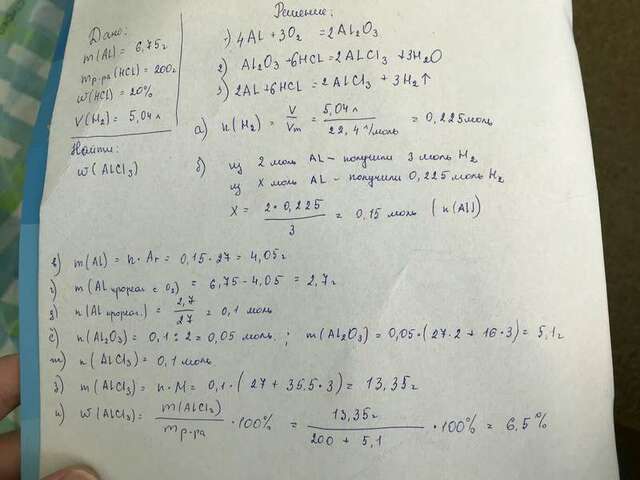 Решение:
Дано:
m(Al) = 6,75г
mр-ра(HCl) = 200г
w(HCl) = 20%
V(H2) = 5,04 л
Найти:
w(AlCl3)
1) 4Al + 3O2 = 2Al2O3
2) Al2O3 + 6HCl = 2AlCl3 + 3H2O
3) 2Al + 6HCl = 2AlCl3 + 3H2↑
а) n(H2) = V/Vm = 5,04 л/22,4 л/моль = 0,225 моль
б) из 2 моль Al – получили 3 моль H2
из x моль Al – получили 0,225 моль H2
X = 2·0,225/3 = 0,15 моль (n(Al))
в) m(Al) = n·Ar = 0,15·27 = 4,05г
г) m(Al прореаг с O2) = 6,75 - 4,05 = 2,7г
д) n(Al прореаг.) = 2,7/27 = 0,1 моль
ё) n(Al2O3) = 0,1 : 2 = 0,05 моль ; m(Al2O3) = 0,05·(27·2 + 16·3) = 5,1г
ж) n(AlCl3) = 0,1 моль
з) m(AlCl3) = n·M = 0,1·(27 + 35.5·3) = 13,35г
и) w(AlCl3) = m(AlCl3)/mр-ра ·100% = 13,35г/200 + 5,1 ·100% = 6,5%